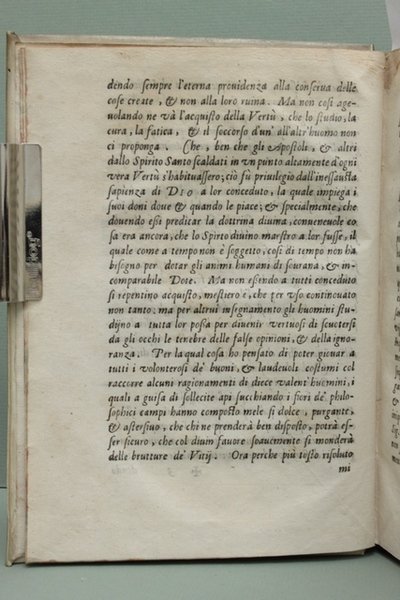 dendo sempre l'eterna prouidenza alla conserua delle
cose create, & non alla loro ruina. Ma non cosi age-
uolando ne và l'acquisto della Vertù, che lo studio, la
cura, la fatica, & il soccorso d'un' all'altr'huomo non
ci proponga. Che, ben che gli Apostoli, & altri
dallo Spirito Santo scaldati in vn punto altamente d'ogni
vera Vertù s'habituassero; ciò fù priuilegio dall'inessausta
sapienza di DIO a lor conceduto, la quale impiega i
suoi doni doue & quando le piace; & specialmente, che
douendo essi predicar la dottrina diuina, conueneuole co
sa era ancora, che lo Spirto diuino maestro a lor fusse, il
quale come a tempo non è soggetto, così di tempo non ha
bisogno per dotar gli animi humani di sourana, & in-
comparabile Dote. Ma non essendo a tutti conceduto
sì repentino acquisto, mestiero è, che per vso continouato
non tanto, ma per altrui insegnamento gli huomini stu-
dijno a tutta lor possa per diuenir vertuosi di scuotersi
da gli occhi le tenebre delle false opinioni, & della igno-
ranza. Per la qual cosa ho pensato di poter giouar a
tutti i volonterosi de' buoni, & laudeuoli costumi col
raccorre alcuni ragionamenti di diece valent'huomini, i
quali a guisa di sollecite api succhiando i fiori de' philo-
sophici campi hanno composto mele sì dolce, purgante,
& astersiuo, che chi ne prenderà ben disposto, potrà es-
ser sicuro, che col diuin fauore soauemente si monderà
delle brutture de' Vitij. Ora perche più tosto risoluto
mi